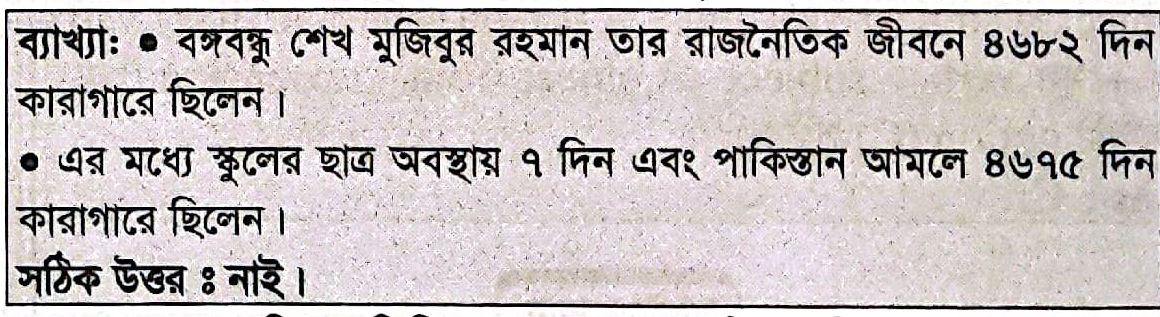 ব্যাখ্যা: ● বঙ্গবন্ধু শেখ মুজিবুর রহমান তার রাজনৈতিক জীবনে ৪৬৮২ দিন
কারাগারে ছিলেন।
● এর মধ্যে স্কুলের ছাত্র অবস্থায় ৭ দিন এবং পাকিস্তান আমলে ৪৬৭৫ দিন
কারাগারে ছিলেন।
সঠিক উত্তর ঃ নাই।